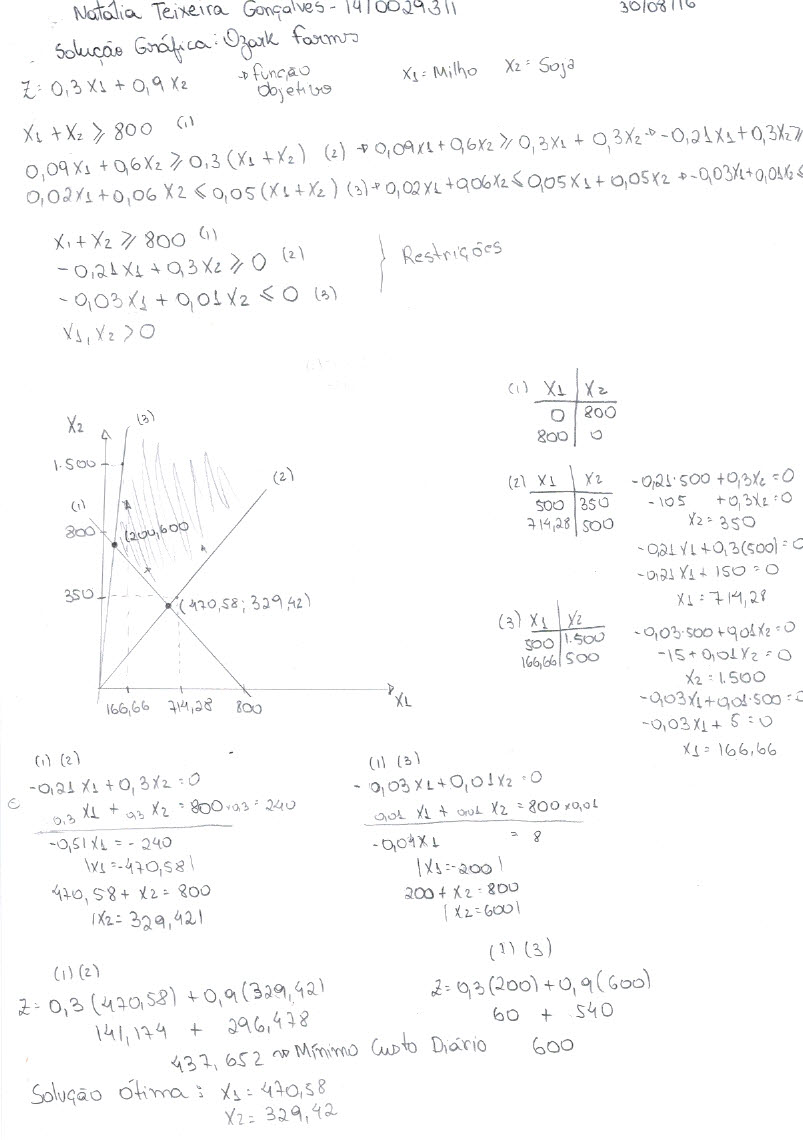 Natália Teixeira Gonçalves - 14/0029311 30/08/16
Solução Gráfica: Ozark Farms
Z = 0,3 X1 + 0,9 X2 → função objetivo X1 = Milho X2 = Soja
X1 + X2 ≥ 800 (1)
0,09X1 + 0,6X2 ≥ 0,3(X1+X2) (2) → 0,09X1 + 0,6X2 ≥ 0,3X1 + 0,3X2 → -0,21X1 + 0,3X2 ≥
0,02X1 + 0,06 X2 ≤ 0,05(X1+X2) (3) → 0,02X1 + 0,06X2 ≤ 0,05X1 + 0,05X2 → -0,03X1 + 0,01X2 ≤
X1 + X2 ≥ 800 (1)
-0,21X1 + 0,3X2 ≥ 0 (2)
-0,03X1 + 0,01X2 ≤ 0 (3)
X1, X2 > 0
} Restrições
X2
(3)
1.500
(2)
(1)
800
(200,600
350
(470,58; 329,42)
166,66 714,28 800
X1
(1) X1 X2
0 800
800 0
(2) X1 X2
500 350
714,28 500
-0,21·500 + 0,3X2 = 0
-105 + 0,3X2 = 0
X2 = 350
-0,21X1 + 0,3(500) = 0
-0,21X1 + 150 = 0
X1 = 714,28
(3) X1 X2
500 1.500
166,66 500
-0,03·500 + 0,01X2 = 0
-15 + 0,01X2 = 0
X2 = 1.500
-0,03X1 + 0,01·500 = 0
-0,03X1 + 5 = 0
X1 = 166,66
(1) (2)
-0,21X1 + 0,3X2 = 0
0,3 X1 + 0,3 X2 = 800 x 0,3 = 240
-0,51X1 = -240
|X1 = -470,58|
470,58 + X2 = 800
|X2 = 329,42|
(1) (3)
-0,03X1 + 0,01X2 = 0
0,01 X1 + 0,01 X2 = 800 x 0,01
-0,04X1 = 8
|X1 = -200|
200 + X2 = 800
|X2 = 600|
(1) (2)
Z = 0,3(470,58) + 0,9(329,42)
141,174 + 296,478
437,652 → Mínimo Custo Diário
(1) (3)
Z = 0,3(200) + 0,9(600)
60 + 540
600
Solução Ótima: X1 = 470,58
X2 = 329,42